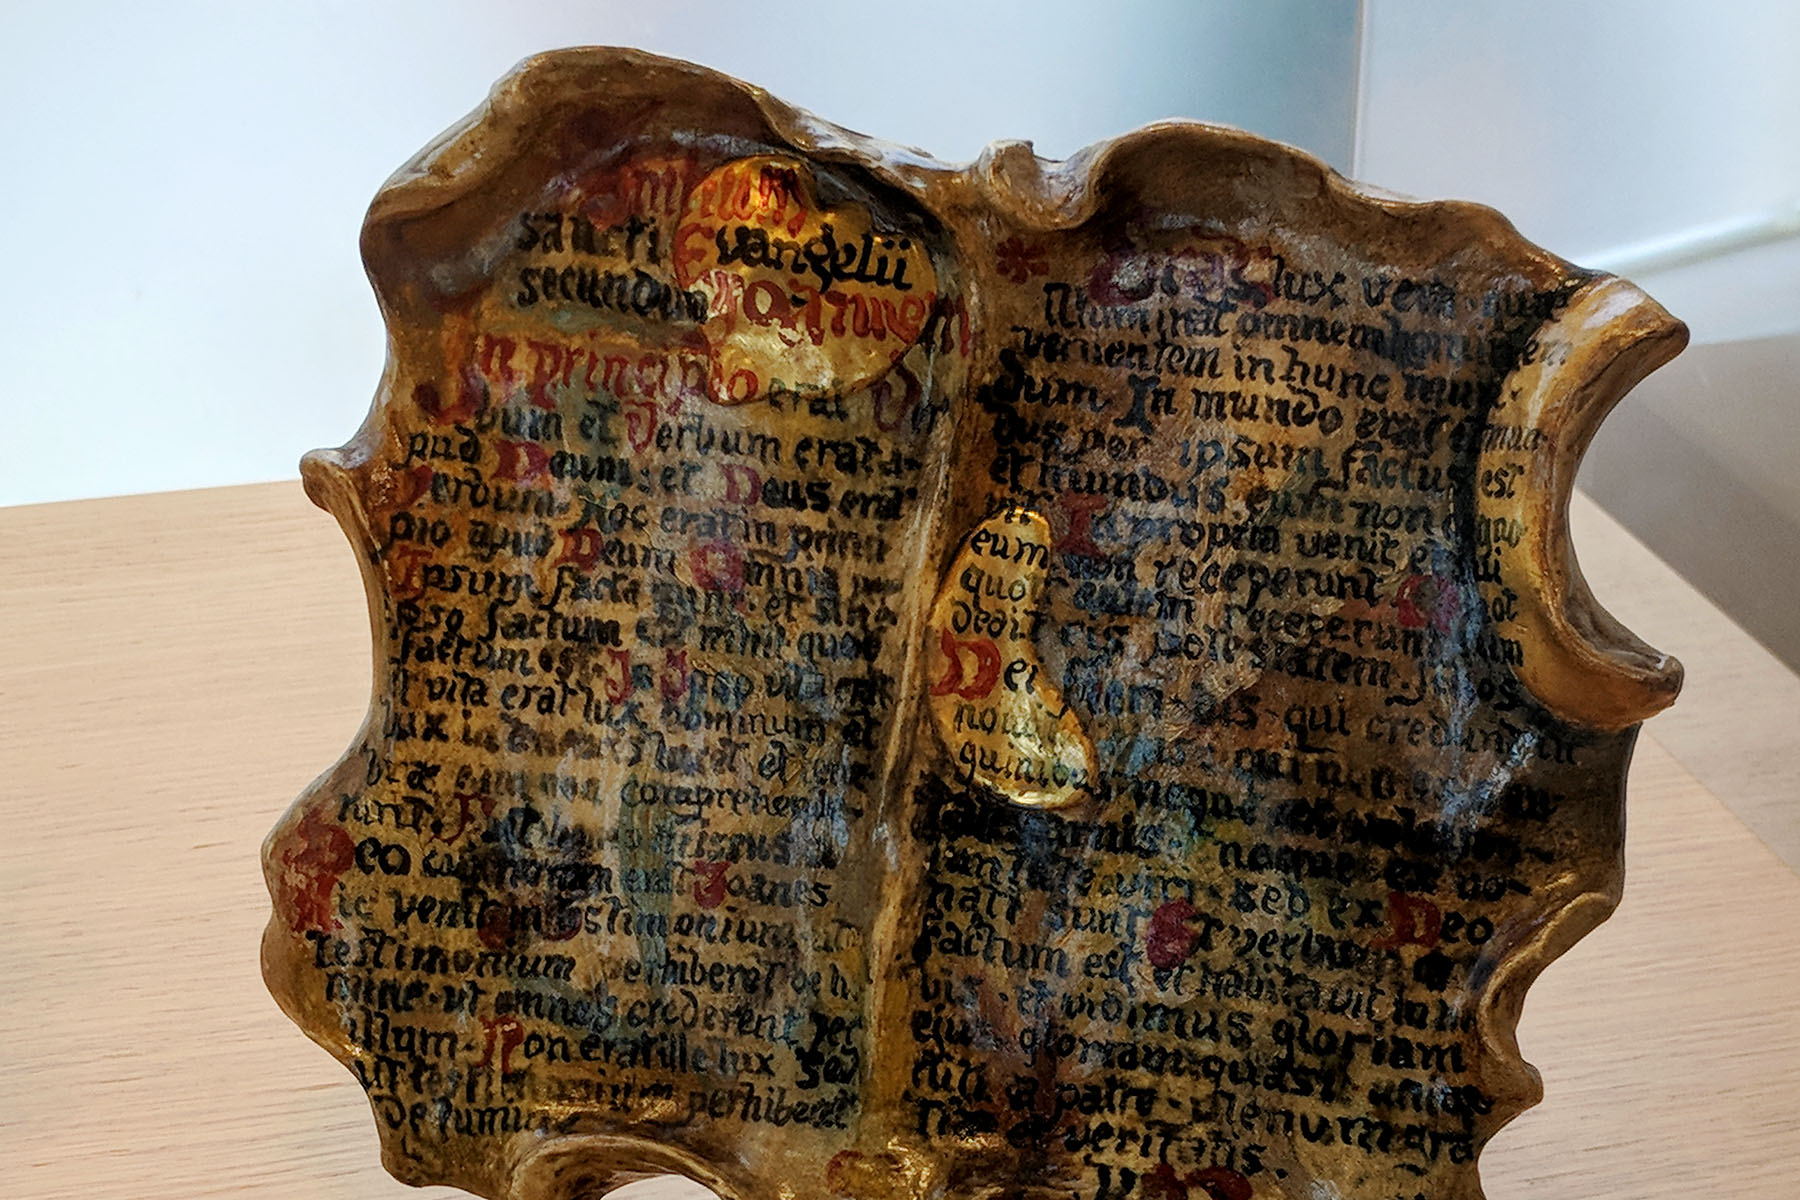 Initium
sancti Evangelii
secundum Joannem
In principio erat Ver
bum et Verbum erat a-
pud Deum: et Deus erat
Verbum. Hoc erat in princi
pio apud Deum Omnia per
Ipsum facta sunt: et sine
ipso factum est nihil quod
factum est. In Ipso vita erat
et vita erat lux hominum et
lux in tenebris lucet et tene-
brae eam non comprehende-
runt. Fuit homo missus a
Deo cui nomen erat Joanes
Hic venit in testimonium ut
testimonium perhiberet de lu-
mine. ut omnes crederent per
illum. Non erat ille lux sed
ut testimonium perhiberet
de lumine
Erat lux vera quae
illuminat omnem hominem
venientem in hunc mun-
dum. In mundo erat et mun-
dus per ipsum factus est
et mundus eum non cogno
vit In propria venit et sui
eum non receperunt Quot
quot autem receperunt eum
dedit eis potestatem filios
Dei fieri. his qui credunt in
nomine ejus qui non ex
guinibus neque ex voluntate
carnis neque ex vo-
luntate viri. sed ex Deo
nati sunt Et verbum caro
factum est et habitavit in no
bis. et vidimus gloriam
ejus gloriam quasi unige
niti a patre. plenum gra
tiae et veritatis.